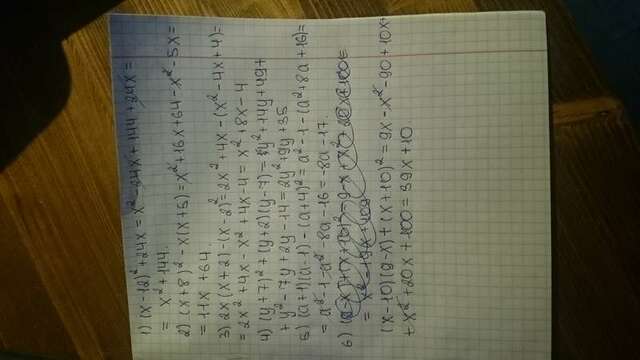 1) (x-12)²+24x = x²-24x+144+24x=
= x²+144.
2) (x+8)²-x(x+5)=x²+16x+64-x²-5x=
= 11x+64.
3) 2x(x+2)-(x-2)²=2x²+4x-(x²-4x+4)=
= 2x²+4x-x²+4x-4=x²+8x-4
4) (y+7)²+(y+2)(y-7)=y²+14y+49+
+y²-7y+2y-14=2y²+9y+35
5) (a+1)(a-1)-(a+4)²=a²-1-(a²+8a+16)=
= a²-1-a²-8a-16=-8a-17.
6)
(x-10)(9-x)+(x+10)²=9x-x²-90+10x+
+x²+20x+100=39x+10